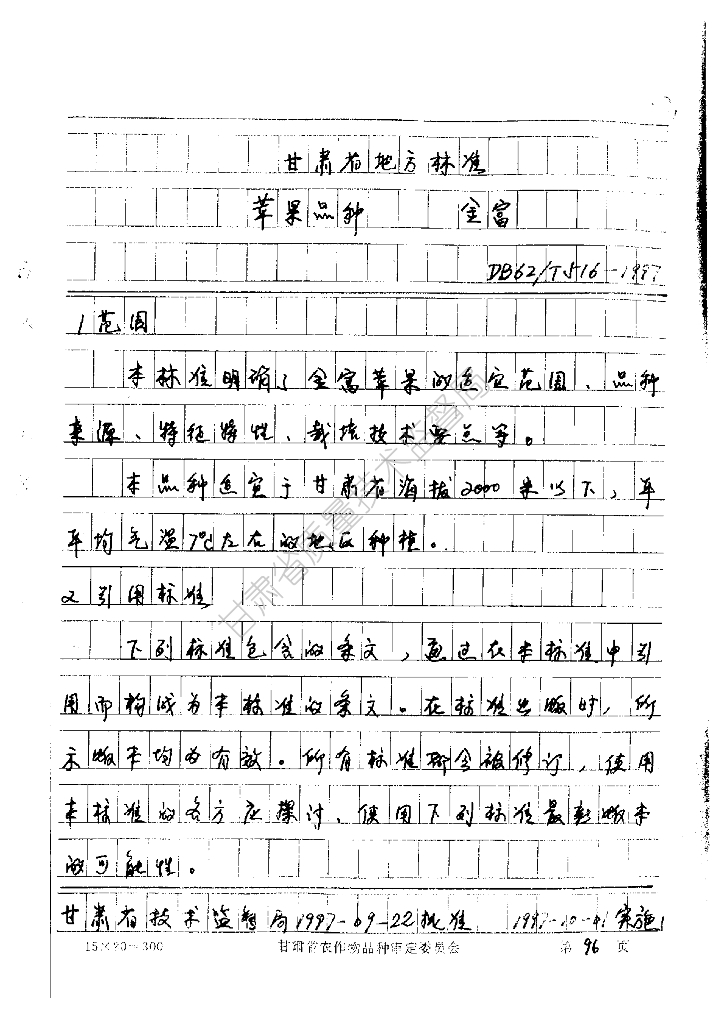 甘肃省地方标准
苹果品种 金富
DB62/T516-1997
1 范围
本标准明确了金富苹果的适宜范围、品种
来源、特征特性、栽培技术要点等。
本品种适宜于甘肃省海拔2000米以下，年
平均气温7℃左右的地区种植。
2 引用标准
下列标准包含的条文，通过在本标准中引
用而构成为本标准的条文。在标准出版时，所
示版本均为有效。所有标准都会被修订，使用
本标准的各方应探讨、使用下列标准最新版本
的可能性。
甘肃省技术监督局1997-09-22批准 1997-10-01实施
甘肃省农作物品种审定委员会 第 96 页
甘肃省质量技术监督局